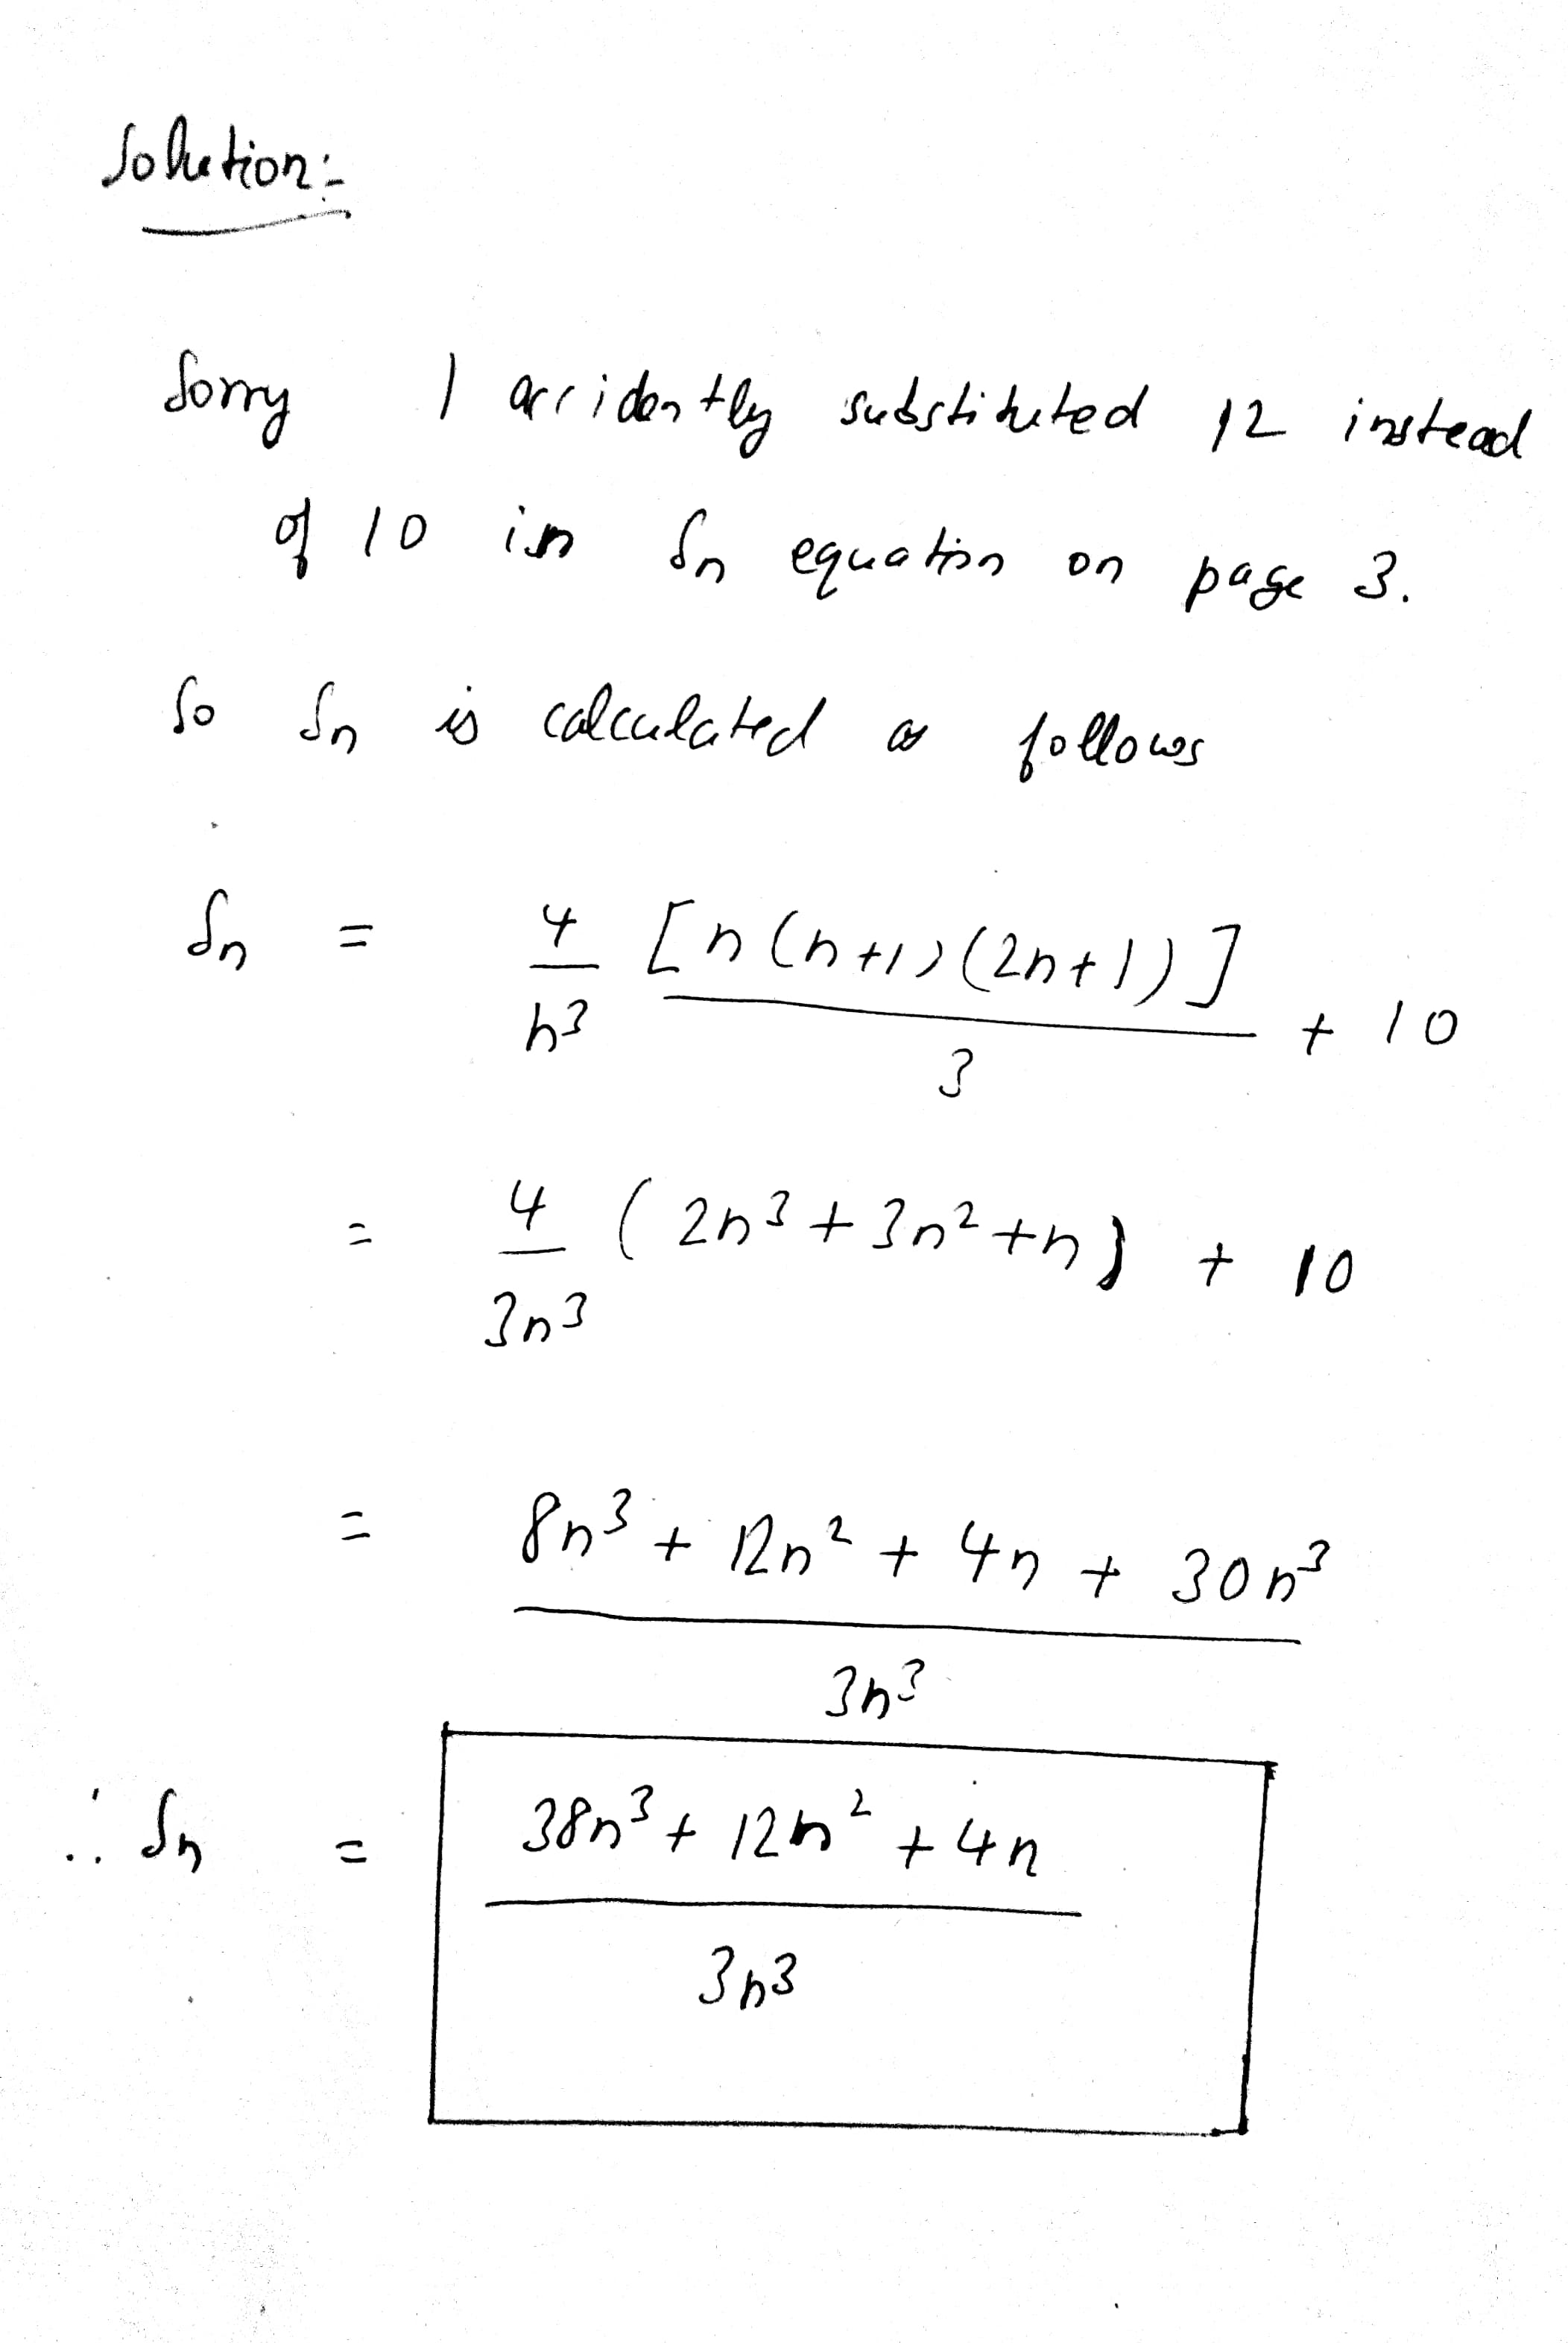 Solution:-
Sorry I accidently substituted 12 instead
of 10 in Sn equation on page 3.
So Sn is calculated as follows
Sn = 4/n³ [n(n+1)(2n+1)]/3 + 10
= 4/3n³ (2n³+3n²+n) + 10
= 8n³ + 12n² + 4n + 30n³ / 3n³
∴ Sn = 38n³ + 12n² + 4n / 3n³